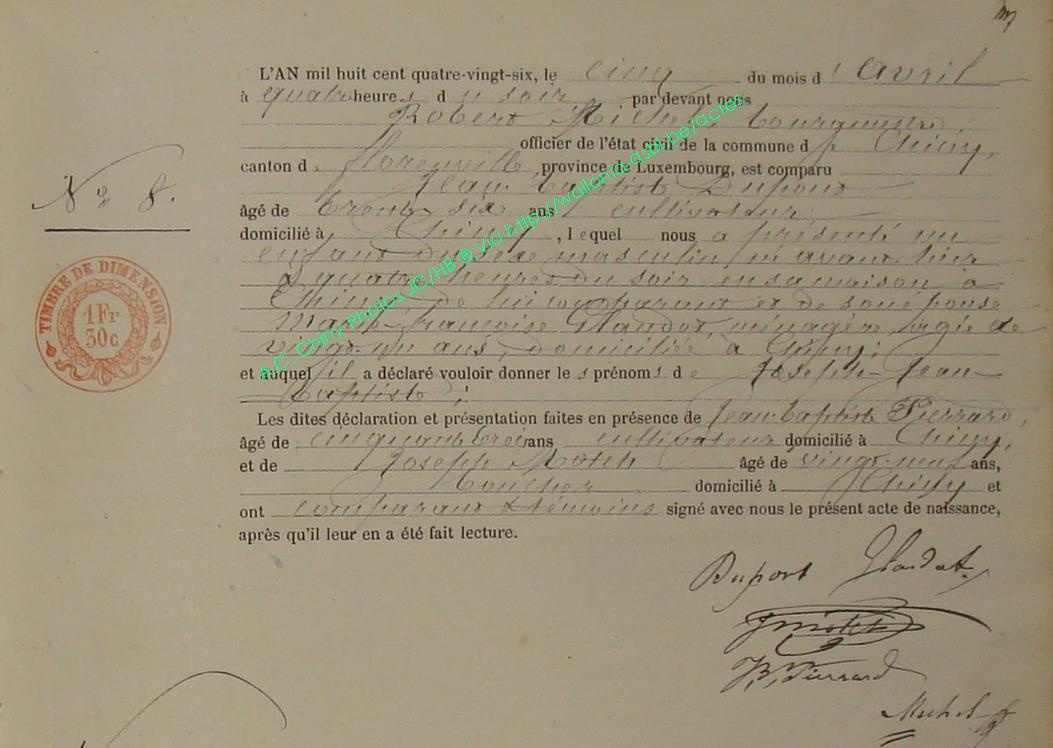 L'AN mil huit cent quatre-vingt-six, le cinq du mois d'avril
à quatre heures du soir par devant nous
Robert Michel, bourgmestre,
officier de l'état civil de la commune de Chiny,
canton de florenville province de Luxembourg, est comparu
Jean-Baptiste Dupont
âgé de trente six ans, cultivateur,
domicilié à Chiny, lequel nous a présenté un
enfant du sexe masculin né avant hier
à quatre heures du soir en sa maison à
Chiny de lui comparant et de son épouse
Marie-françoise ménagère, agée de
vingt-un ans, domiciliée à Chiny;
et auquel il a déclaré vouloir donner les prénoms de Joseph-Jean-
Baptiste;
Les dites déclaration et présentation faites en présence de Jean-baptiste Pierrard,
âgé de cinquante trois ans cultivateur domicilié à Chiny,
et de Joseph âgé de vingt-neuf ans,
domicilié à Chiny et
ont comparant & témoins signé avec nous le présent acte de naissance,
après qu'il leur en a été fait lecture.
No 8.
TIMBRE DE DIMENSION
1 Fr
30 c
A.C. Chiny Photos JC/HB ® via http://wallonia-asbl.be/actes
Dupont
JB, Pierrard
Michel